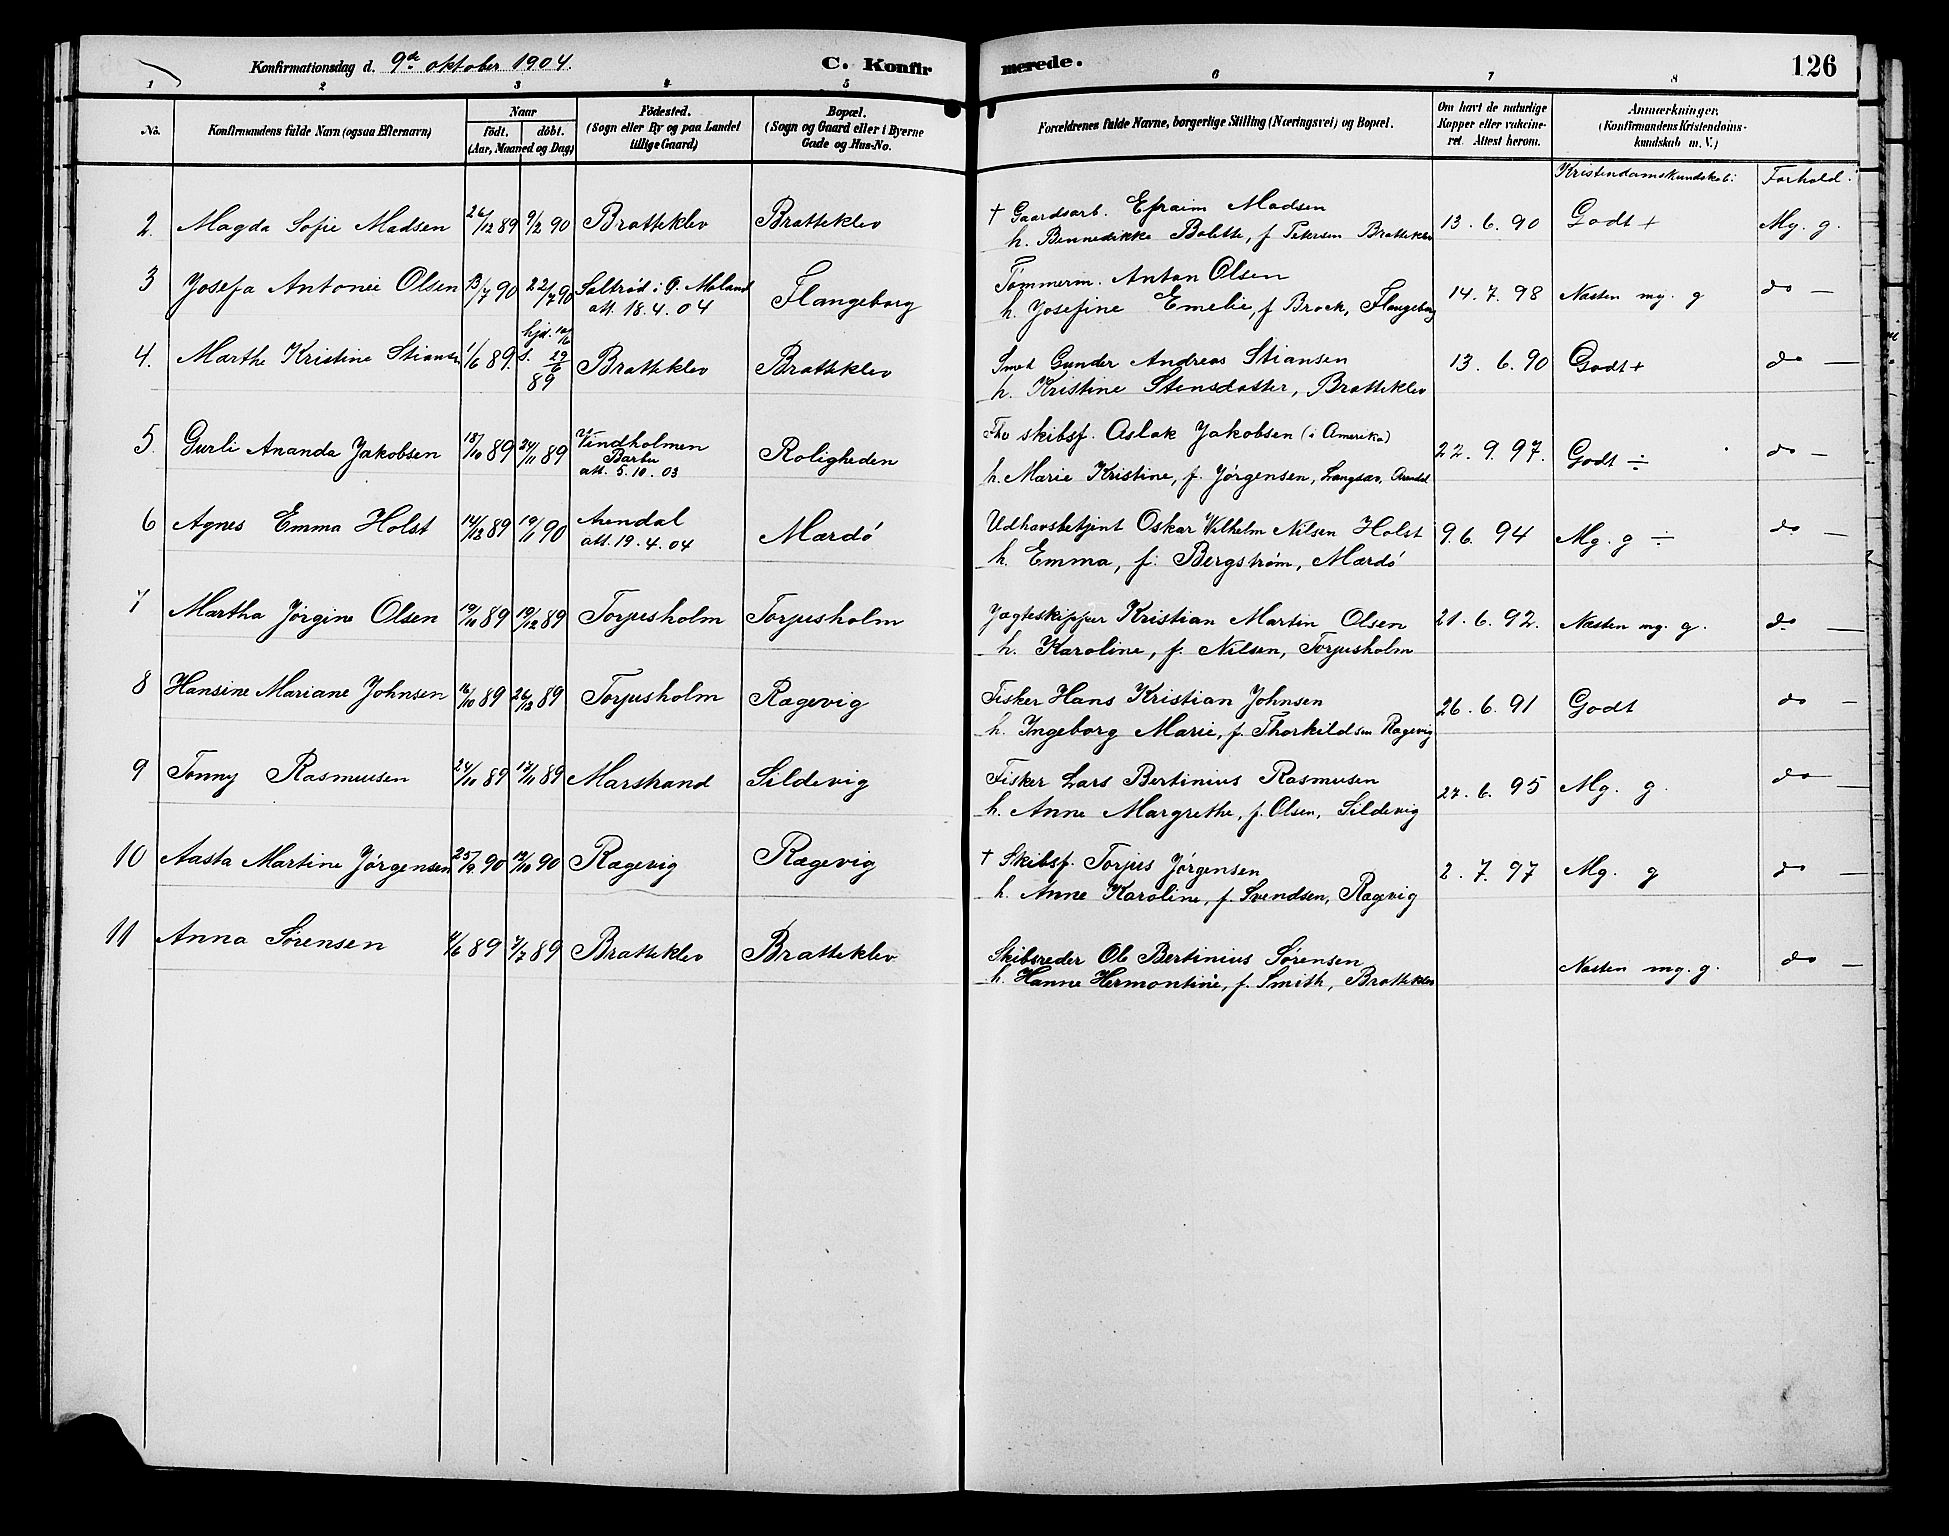 Konfirmationsdag d. 9de oktober 1904.
C. Konfirmerede.
126
1 2 3 4 5 6 7 8
No.
Konfirmandens fulde Navn (ogsaa Efternavn)
Naar
født. døbt.
(Aar, Maaned og Dag)
Fødested.
(Sogn eller By og paa Landet
tillige Gaard)
Bopæl.
(Sogn og Gaard eller i Byerne
Gade og Hus-No.
Forældrenes fulde Navne, borgerlige Stilling (Næringsvei) og Bopæl.
Om havt de naturlige
Kopper eller vakcine-
ret. Attest herom.
Anmærkninger.
(Konfirmandens Kristendoms-
kundskab m. V.)
Kristendomskundskab: Forhold:
2. Magda Sofie Madsen 26/12 89 9/2 90 Bratteklev Bratteklev † Gaardsarb. Efraim Madsen 13. 6. 90 Godt + Mg. g.
h. Bennedikke Bolette, f Petersen Bratteklev
3 Josefa Antonie Olsen 13/7 90 22/7 90 Saltrød i Ø. Moland Flangeborg Tømmerm. Anton Olsen 14. 7. 98 Næsten mg. g do —
att. 18. 4. 04
h. Josefine Emelie, f Brock, Flangeborg
4. Marthe Kristine Stiansen 1/6 89. hjd. 10/6 Bratteklev Bratteklev Smed Gunder Andreas Stiansen 13. 6. 90 Godt + do —
s. 29/6
89
h. Kristine Stensdatter, Bratteklev
5. Gurli Ananda Jakobsen 18/10 89 24/11 89 Vindholmen Roligheden Fhv skibsf. Aslak Jakobsen (i Amerika) 22. 9. 97. Godt ÷ do —
Barbu
att. 5. 10. 03
h. Marie Kristine, f. Jørgensen, Langsæv, Arendal
6 Agnes Emma Holst 14/12 89 19/1 90 Arendal Mærdø Udhavsbetjent Oskar Vilhelm Nilsen Holst 9. 6. 94 Mg. g ÷ do —
att. 19. 4. 04
h. Emma, f. Bergstrøm, Mærdø
7 Martha Jørgine Olsen 19/10 89 19/12 89 Torjusholm Torjusholm Jægteskipper Kristian Martin Olsen 21. 6. 92. Næsten mg. g. do —
h. Karoline, f. Nilsen, Torjusholm
8 Hansine Mariane Johnsen 16/10 89 26/12 89 Torjusholm Rægevig Fisker Hans Kristian Johnsen 26. 6. 91 Godt do —
h. Ingeborg Marie, f. Thorkildsen Rægevig
9 Tonny Rasmussen 24/10 89 17/11 89 Marstrand Sildevig Fisker Lars Bertinius Rasmusen 27. 6. 95 Mg. g. do —
h. Anne Margrethe, f. Olsen, Sildevig
10 Aasta Martine Jørgensen 25/9. 90 19/10 90 Rægevig Rægevig † Skibsf. Torjus Jørgensen 2. 7. 97 Mg. g do —
h. Anne Karoline, f. Svendsen, Rægevig
11 Anna Sørensen 4/6 89 7/7 89 Bratteklev Bratteklev Skibsreder Ole Bertinius Sørensen Næsten mg. g. do —
h. Hanne Hermontine, f. Smith, Bratteklev